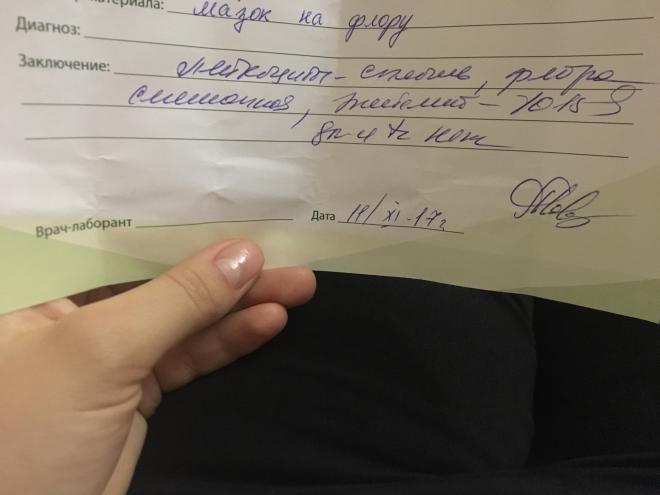 материала: мазок на флору
Диагноз:
Заключение: Лейкоциты - сплошь, флора
смешанная, эпителий - 10-15-
gn и tr нет
Врач-лаборант Дата 11/XI-17г